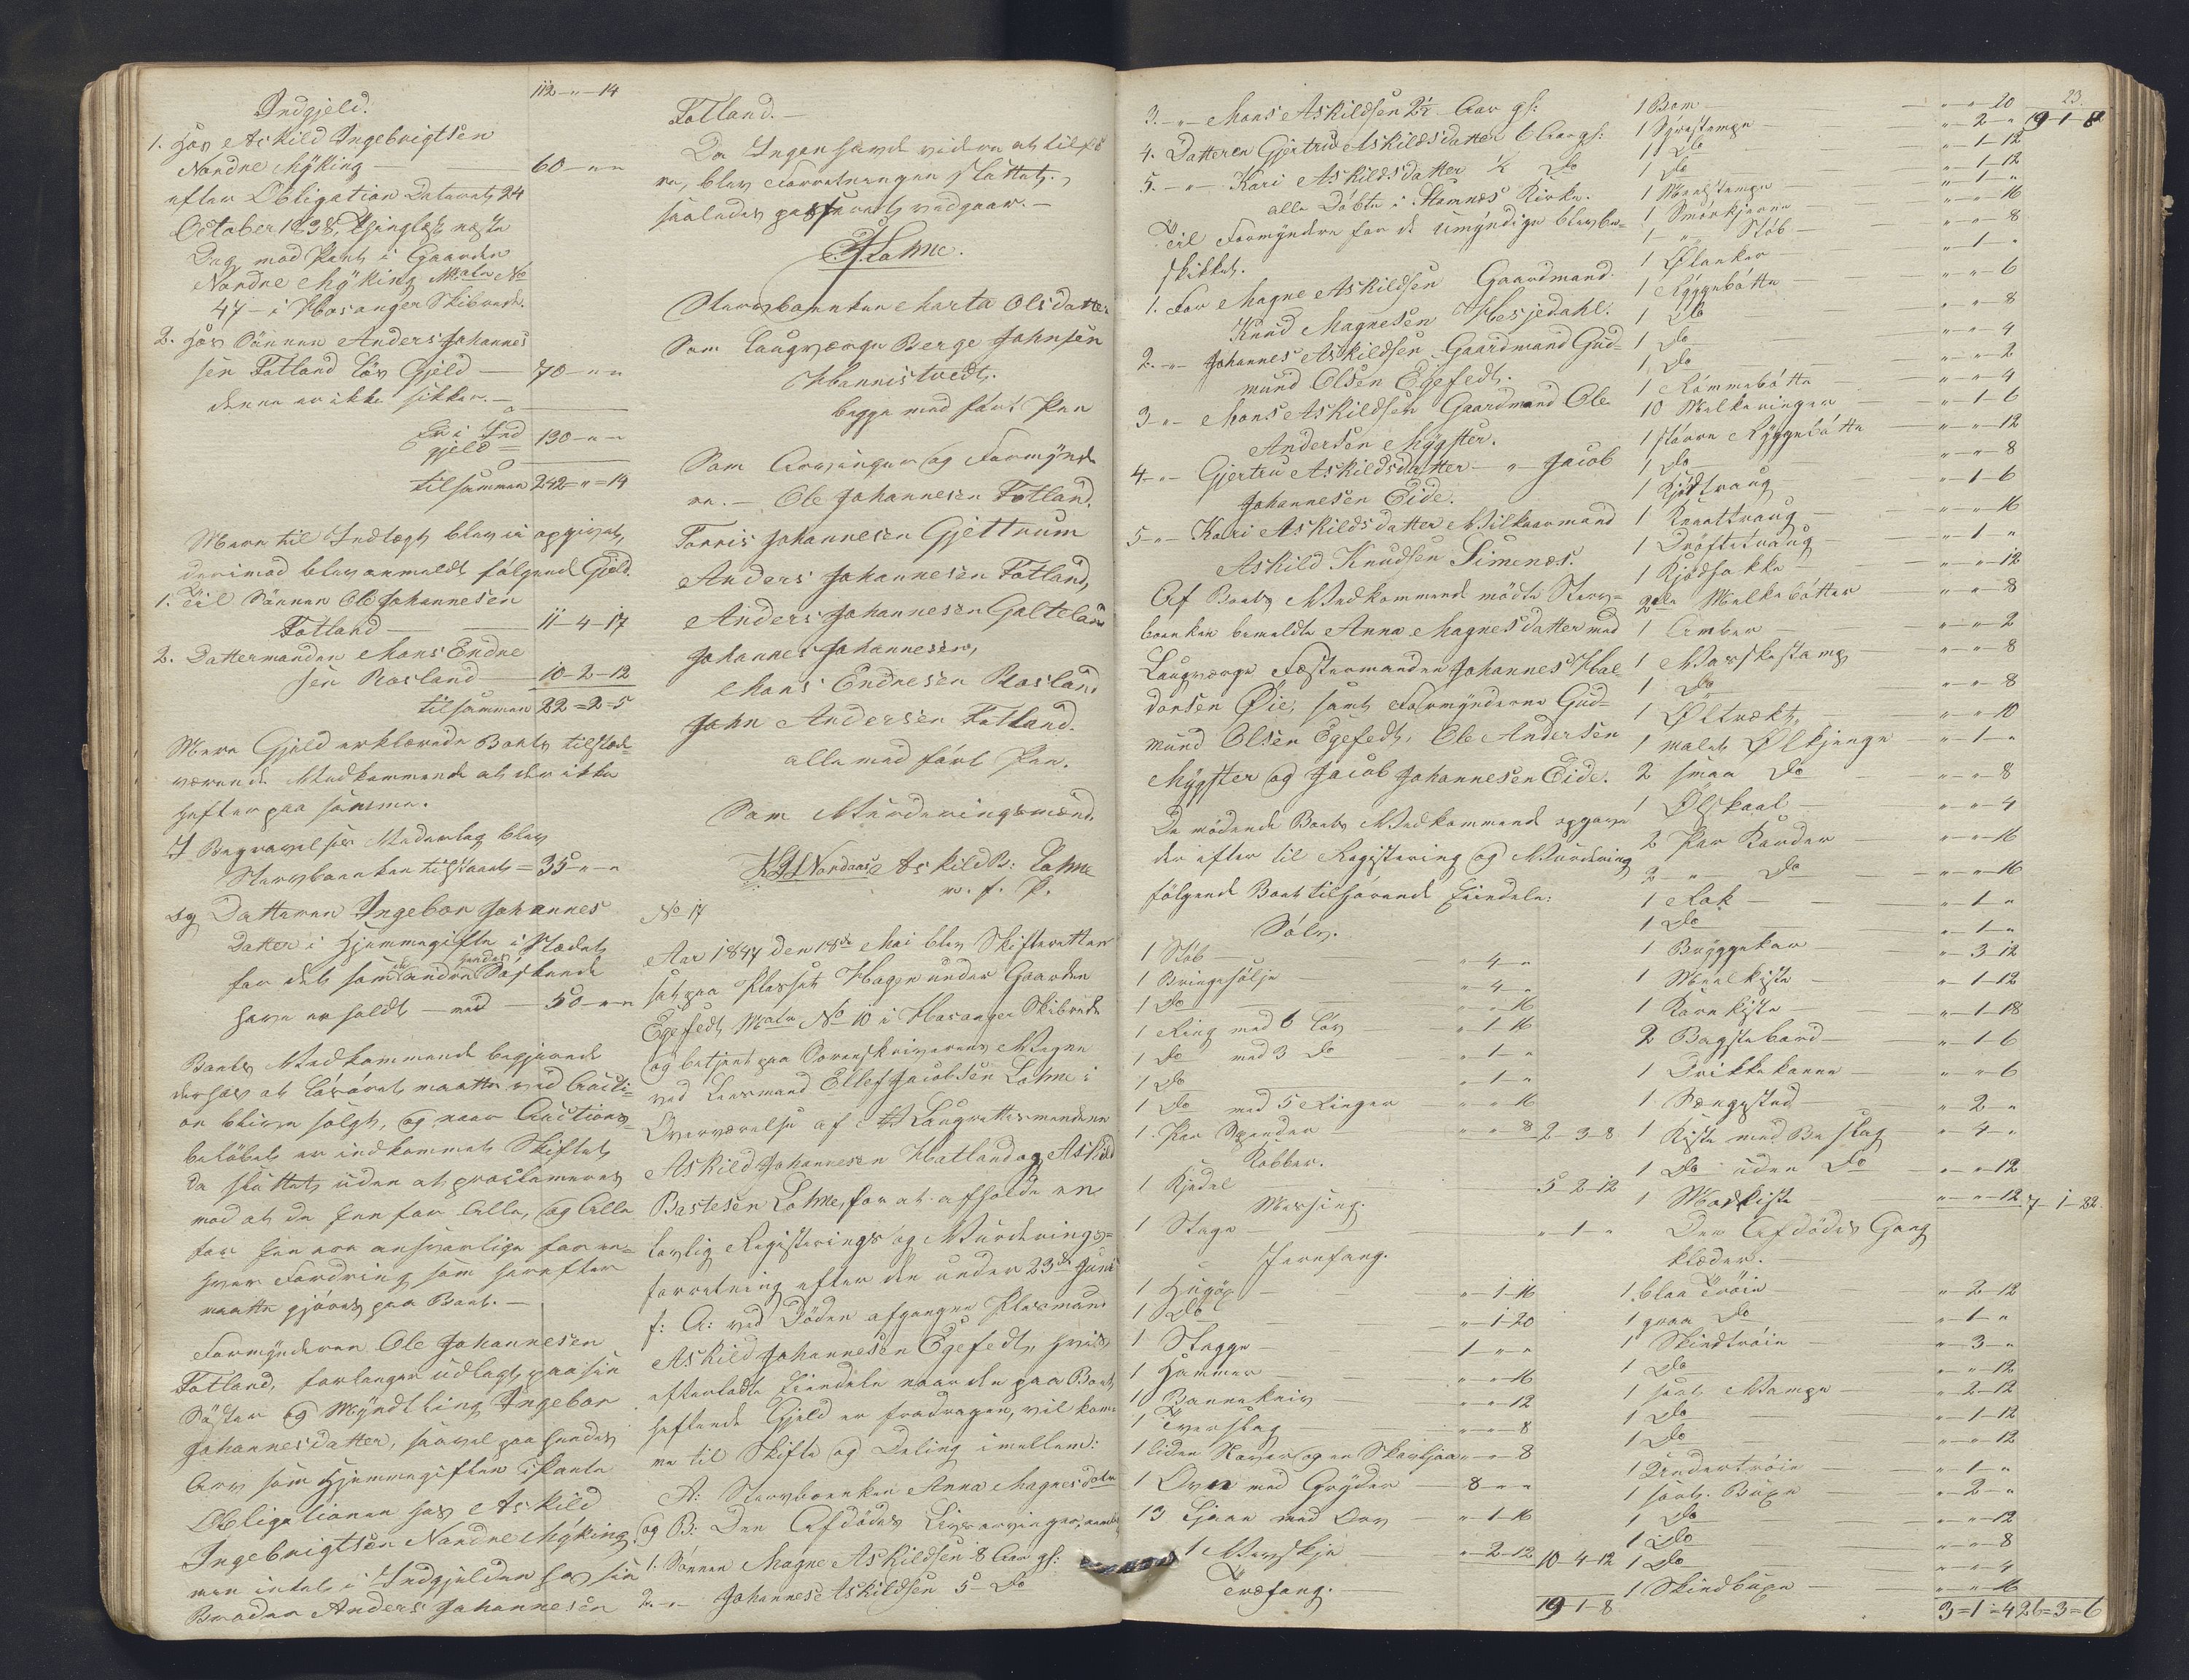 112 - " - 14
Indgjeld.
1. Hos Askild Ingebrigtsen
Nordre Mÿking 60 - " - "
efter Obligation Dateret 24
October 1838, Thinglæst næste
Dag mod Pant i Gaarden
Nordre Mÿking Matr No
47 - i Hosanger Skibrede.
2. Hos Sönnen Anders Johannes
sen Fotland løs Gjeld - 70 - " - "
denne er ikke sikker. -
Er i Ind
gjeld = 130 - " - "
tilsammen 242 = " = 14
Mere til Indtægt blev ei opgivet,
derimod blev anmeldt følgende Gjeld.
1. Til Sönnen Ole Johannesen
Fotland 11 - 4 - 17
2. Dattermanden Mons Endre
sen Rosland 10 - 2 - 12
tilsammen 22 = 2 = 5
Mere Gjeld erklærede Boets tilstæde
værende Medkommende at der ikke
hefter paa samme.
I Begravelses Vederlag blev
Stervboenken tilstaaet = 35 - " - "
og Datteren Ingebor Johannes
Datter i Hjemmegifte i stedet
for det som de andre hendes Søskende
have erholdt - med - 50 - " - "
Boets Medkommende begjerede
derhos at Løsöret maatte ved Aucti-
on blive solgt, og naar Auctions-
belöbet er indkommet Skiftet
da sluttet uden at proclameres
mod at de Een for Alle, og Alle
for Een ere ansvarlige for en-
hver Fordring som herefter
maatte gjøres paa Boet. -
Formynderen Ole Johannesen
Fotland, forlanger udlagt paa sin
Søster og Myndtling Ingebor
Johannesdatter, saavel paa hendes
Arv som Hjemmegiften i Pante
Obligationen hos Askild
Ingebrigtsen Nordre Mÿking.
men intet i Indgjelden hos sin
Broder Anders Johannesen
Fotland. -
Da Ingen havde videre at tilfø
re, blev Forretningen sluttet. -
saaledes passeret vedgaar. -
J Lohne.
Stervboenken Marta Olsdatter
Som Laugværge Berge Johnsen
Hannistvedt.
begge medført Pen
Som Arvinger og Formynde
re. - Ole Johannesen Fotland.
Torris Johannesen Gjettrum
Anders Johannesen Fotland,
Anders Johannesen Galteland
Johannes Johannesen,
Mons Endresen Rosland
John Andersen Fotland.
alle medført Pen.
Som Vurderingsmænd.
Askild B: Lohne
m. f. P.
No 17
Aar 1847 den 18de Mai blev Skifteretten
sat paa Pladset Hagen under Gaarden
Egefedt Matr No 10 i Hosanger Skibrede
og betjent paa Sorenskriverens Vegne
ved Lensmand Ellef Jacobsen Lohne i
Overværelse af Laugrettesmændene
Askild Johannesen Hatland og Askild
Bastesen Lohne, for at afholde en
lovlig Registerings og Vurderings-
forretning efter den under 23de Juni
f: A: ved Döden afgangne Pladsmand
Askild Johannesen Egefedt, hvis
efterladte Eiendele naar den paa Boet
heftende Gjeld er fradragen, vil kom-
me til Skifte og Deling imellem:
A: Stervboenken Anna Magnesdatter
og B: Den Afdödes Livsarvinger, nemlig
1. Sönnen Magne Askildsen 8 Aar gl:
2. - " - Johannes Askildsen 5 - Do
3. - " - Mons Askildsen 2½ Aar gl:
4. Datteren Gjertrud Askildsdatter 6 Aar gl:
5. - " - Kari Askildsdatter ½ Do
alle Döbte i Hamnes Kirke.
Til Formyndere for de Umyndige blev be-
skikket.
1. For Magne Askildsen Gaardmand.
Knud Magnesen Hesjedahl.
2. - " - Johannes Askildsen Gaardmand Gud-
mund Olsen Egefedt.
3 - " - Mons Askildsen Gaardmand Ole
Andersen Mÿgster.
4 - " - Gjertru Askildsdatter - " - Jacob
Johannesen Eide.
5 - " - Kari Askildsdatter Vilkaarmand
Askild Knudsen Simenæs.
Af Boets Medkommende mödte Sterv-
boenken bemeldte Anna Magnesdatter med
Laugværge Fæstermanden Johannes Hal-
dorsen Øie, samt Formynderne Gud-
mund Olsen Egefedt, Ole Andersen
Mÿgster og Jacob Johannesen Eide.
De mödende Boets Medkommende opgave
derefter til Registering og Vurdering
følgende Boet tilhørende Eiendele:
Sölv.
1 Støb " - 4 - "
1 Bringesølje " - 4 - "
1 Do " - " - 16
1 Ring med 6 Löv " - 1 - 16
1 Do med 3 Do " - 1 - "
1 Do " - 1 - "
1 Do med 5 Ringer " - " - 16
1 Par Spender " - " - 8 2 - 3 - 8
Kobber.
1 Kjedel 5 - 2 - 12
Messing.
1 Stage " - 1 - "
Jernfang.
1 Hugöx " - 1 - 16
1 Do " - 1 - 20
1 Slegge 1 - " - "
1 Hammer " - " - 16
1 Bannekniv " - " - 12
1 Tverslag " - " - 8
1 liden Naver og en Skovljaa " - " - 8
1 Ovn med Gryder 8 - " - "
13 Ljaae med Orv " - 1 - 16
1 Vevskje " - 2 - 12 10 - 4 - 12
Træfang.
19 - 1 - 8
23.
1 Bom " - " - 20 19 - 1 - 8
1 Syrestampe " - 2 - "
1 Do " - 1 - 12
1 Do " - 1 - 12
1 Meelstampe " - 1 - "
1 Smörkjerne " - " - 16
1 - " - Støb " - " - 8
1 Ølanker " - 1 - "
1 Ryggebøtte " - " - 6
1 Do " - " - 8
1 Do " - " - 4
1 Do " - " - 2
1 Rømmebøtte " - " - 4
10 Melkeringer " - 1 - 6
1 større Ryggebøtte " - " - 12
1 Do " - " - 8
1 Kjødtraug " - 1 - 6
1 Knaattraug " - " - 16
1 Dröftetraug " - 1 - "
1 Kjødsække " - " - 12
2de Melkebøtter " - " - 8
1 Amber " - " - 2
1 Vaskestamp " - " - 8
1 Do " - " - 8
1 Øltrækt, " - " - 10
1 malet Ølkjenge " - 1 - "
2 smaa Do " - " - 8
1 Ølskaal " - " - 4
2 Par Karder " - " - 16
2 - " - Do " - " - 16
1 Rok " - 1 - "
1 Do " - 1 - "
1 Bryggekar " - 3 - 12
1 Meelkiste " - 1 - 12
1 Kornkiste " - 1 - 18
2 Bagstebord " - 1 - 6
1 Drikkekanne " - " - 6
1 Sængested " - 2 - "
1 Kiste med Beslag " - 4 - "
1 Do uden Do " - " - 12
1 Madkiste " - " - 12 7 - 1 - 22.
Den Afdödes Gang
klæder.
1 blaa Trøie " - 2 - 12
1 graa Do " - 1 - "
1 Skindtrøie " - 3 - "
1 Do " - " - 12
1 sort Vampe " - 2 - 12
1 Do " - 1 - 12
1 Do " - " - 12
1 Undertrøie " - 1 - "
1 sort Buxe " - 2 - "
1 Do " - " - 12
1 Do " - " - 8
1 Do " - " - 4
1 Skindbuxe " - " - 16
3 = 1 = 4 26 = 3 = 6